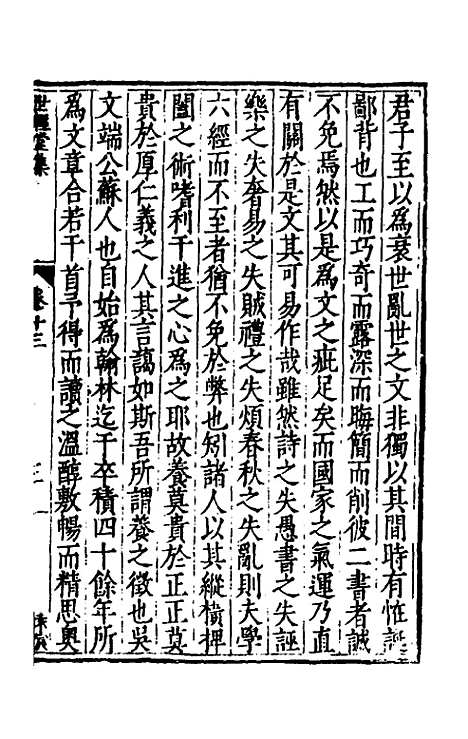 君子至以爲衰世亂世之文非獨以其間時有恠誕
鄙背也工而巧奇而露深而晦簡而削彼二書者誠
不免焉然以是爲文之疵足矣而國家之氣運乃直
有關於是文其可易作哉雖然詩之失愚書之失誣
樂之失奢易之失賊禮之失煩春秋之失亂則夫學
六經而不至者猶不免於弊也矧諸人以其縱橫捭
闔之術嗜利干進之心爲之耶故養莫貴於正正莫
貴於厚仁義之人其言藹如斯吾所謂養之徵也吳
文端公蘇人也自始爲翰林迄于卒積四十餘年所
爲文章合若干首予得而讀之溫醇敷暢而精思奧
世經堂集
卷十三